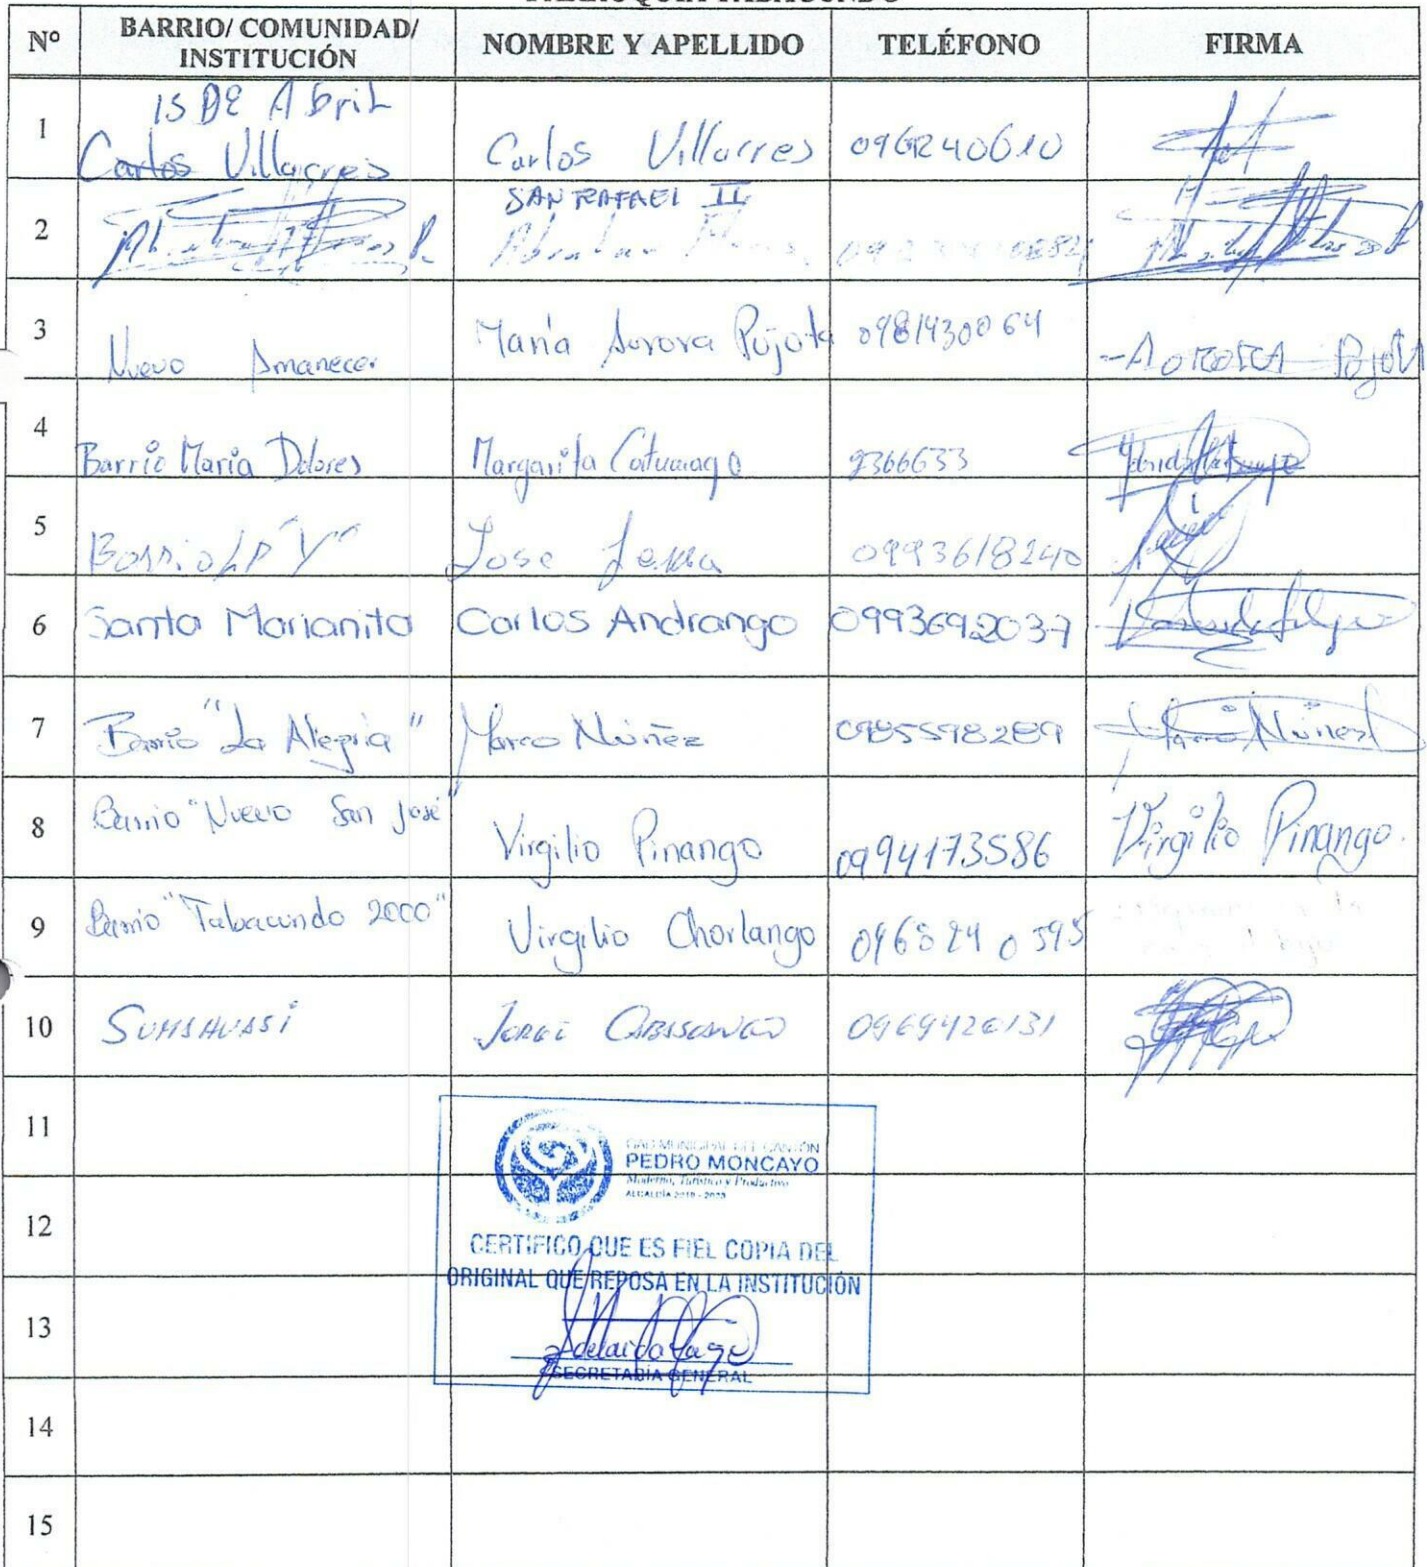 Nº BARRIO/ COMUNIDAD/ INSTITUCIÓN NOMBRE Y APELLIDO TELÉFONO FIRMA
15 DE Abril
1 Carlos Villacres Carlos Villacres
SAN RAFAEL II
2
3 Nuevo Amanecer María Aurora Pujota 0981430064
4 Barrio María Dolores Margarita 2366633
5 Barrio LA "Y" Jose Lema 0993618240
6 Santa Marianita Carlos Andrango 0993692037
7 Barrio "La Alegria" Marco Núñez 0985598289 Marco Núñez
8 Barrio "Nuevo San José" Virgilio Pinango 0994173586 Virgilio Pinango.
9 Barrio "Tabacundo 2000" Virgilio Chorlango
10 JORGE 0969426131
11
GAD MUNICIPAL DEL CANTÓN
PEDRO MONCAYO
Moderno, Turístico y Productivo
ALCALDÍA 2019 - 2023
12
CERTIFICO QUE ES FIEL COPIA DEL
ORIGINAL QUE REPOSA EN LA INSTITUCIÓN
13
SECRETARÍA GENERAL
14
15